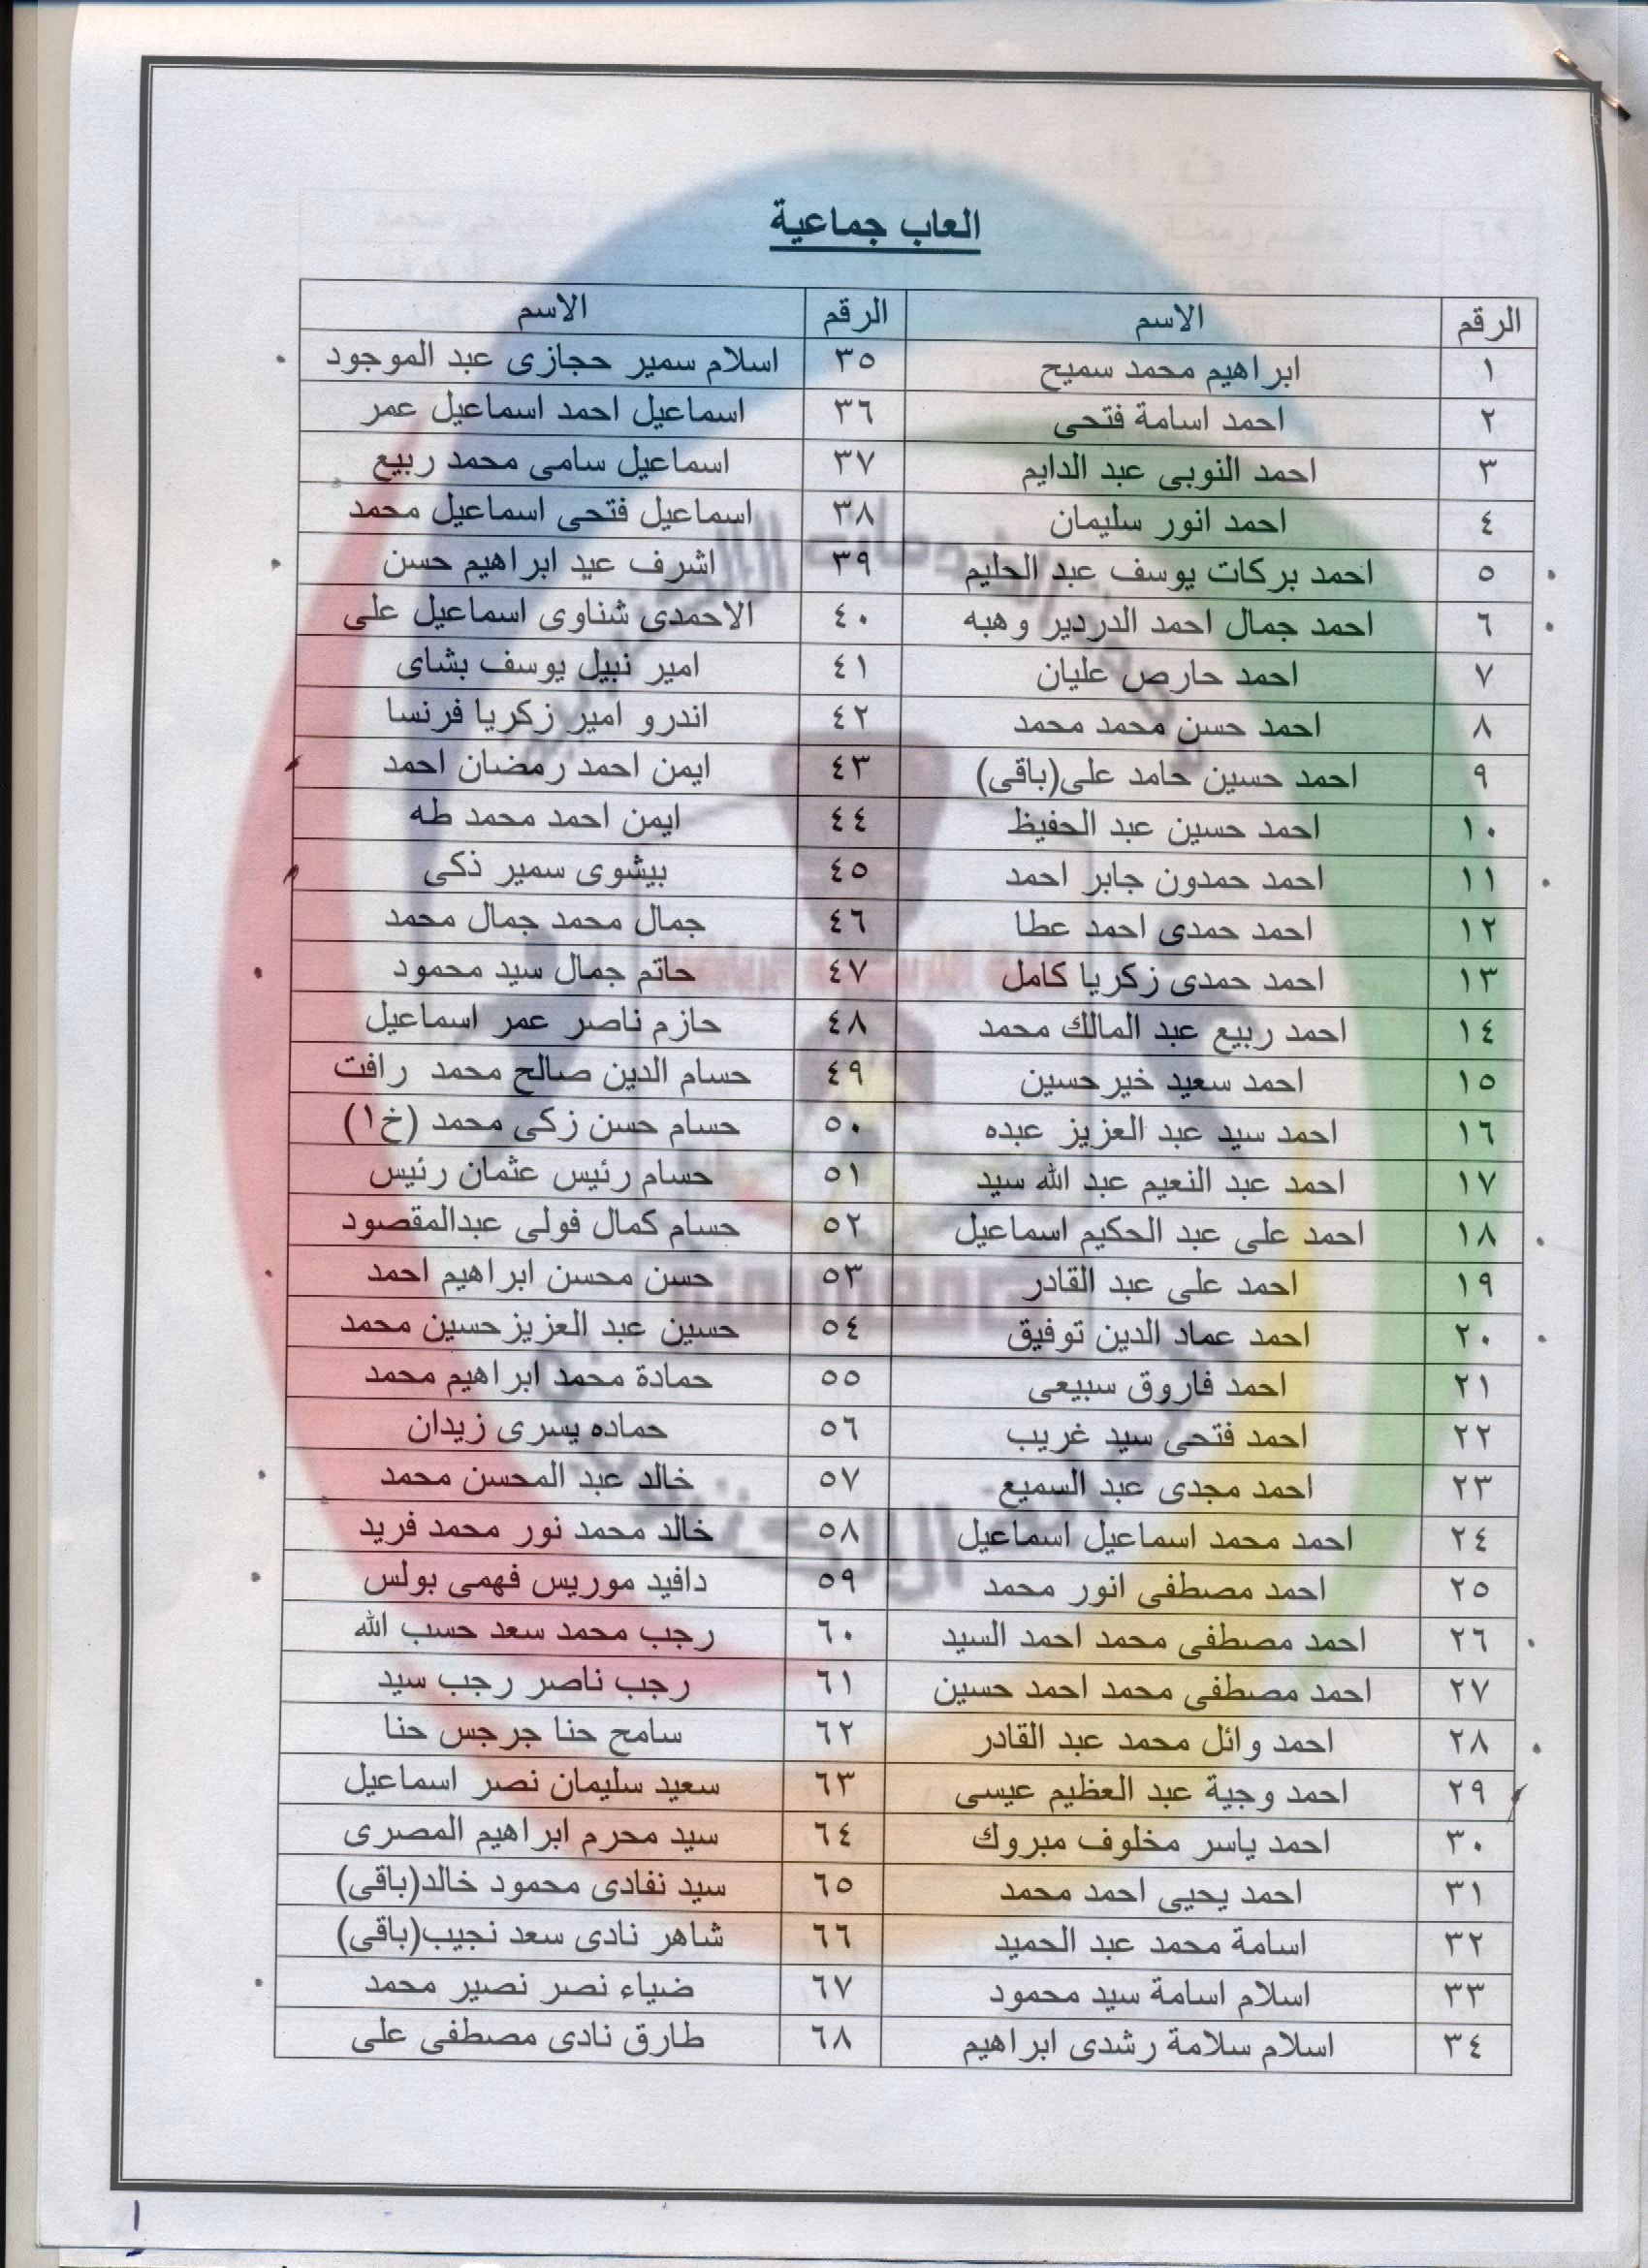 العاب جماعية
الرقم الاسم الرقم الاسم
١ ابراهيم محمد سميح ٣٥ اسلام سمير حجازى عبد الموجود
٢ احمد اسامة فتحى ٣٦ اسماعيل احمد اسماعيل عمر
٣ احمد النوبى عبد الدايم ٣٧ اسماعيل سامى محمد ربيع
٤ احمد انور سليمان ٣٨ اسماعيل فتحى اسماعيل محمد
٥ احمد بركات يوسف عبد الحليم ٣٩ اشرف عيد ابراهيم حسن
٦ احمد جمال احمد الدردير وهبه ٤٠ الاحمدى شناوى اسماعيل على
٧ احمد حارص عليان ٤١ امير نبيل يوسف بشاى
٨ احمد حسن محمد محمد ٤٢ اندرو امير زكريا فرنسا
٩ احمد حسين حامد على(باقى) ٤٣ ايمن احمد رمضان احمد
١٠ احمد حسين عبد الحفيظ ٤٤ ايمن احمد محمد طه
١١ احمد حمدون جابر احمد ٤٥ بيشوى سمير ذكى
١٢ احمد حمدى احمد عطا ٤٦ جمال محمد جمال محمد
١٣ احمد حمدى زكريا كامل ٤٧ حاتم جمال سيد محمود
١٤ احمد ربيع عبد المالك محمد ٤٨ حازم ناصر عمر اسماعيل
١٥ احمد سعيد خيرحسين ٤٩ حسام الدين صالح محمد رافت
١٦ احمد سيد عبد العزيز عبده ٥٠ حسام حسن زكى محمد (خ١)
١٧ احمد عبد النعيم عبد الله سيد ٥١ حسام رئيس عثمان رئيس
١٨ احمد على عبد الحكيم اسماعيل ٥٢ حسام كمال فولى عبدالمقصود
١٩ احمد على عبد القادر ٥٣ حسن محسن ابراهيم احمد
٢٠ احمد عماد الدين توفيق ٥٤ حسين عبد العزيزحسين محمد
٢١ احمد فاروق سبيعى ٥٥ حمادة محمد ابراهيم محمد
٢٢ احمد فتحى سيد غريب ٥٦ حماده يسرى زيدان
٢٣ احمد مجدى عبد السميع ٥٧ خالد عبد المحسن محمد
٢٤ احمد محمد اسماعيل اسماعيل ٥٨ خالد محمد نور محمد فريد
٢٥ احمد مصطفى انور محمد ٥٩ دافيد موريس فهمى بولس
٢٦ احمد مصطفى محمد احمد السيد ٦٠ رجب محمد سعد حسب الله
٢٧ احمد مصطفى محمد احمد حسين ٦١ رجب ناصر رجب سيد
٢٨ احمد وائل محمد عبد القادر ٦٢ سامح حنا جرجس حنا
٢٩ احمد وجية عبد العظيم عيسى ٦٣ سعيد سليمان نصر اسماعيل
٣٠ احمد ياسر مخلوف مبروك ٦٤ سيد محرم ابراهيم المصرى
٣١ احمد يحيى احمد محمد ٦٥ سيد نفادى محمود خالد(باقى)
٣٢ اسامة محمد عبد الحميد ٦٦ شاهر نادى سعد نجيب(باقى)
٣٣ اسلام اسامة سيد محمود ٦٧ ضياء نصر نصير محمد
٣٤ اسلام سلامة رشدى ابراهيم ٦٨ طارق نادى مصطفى على